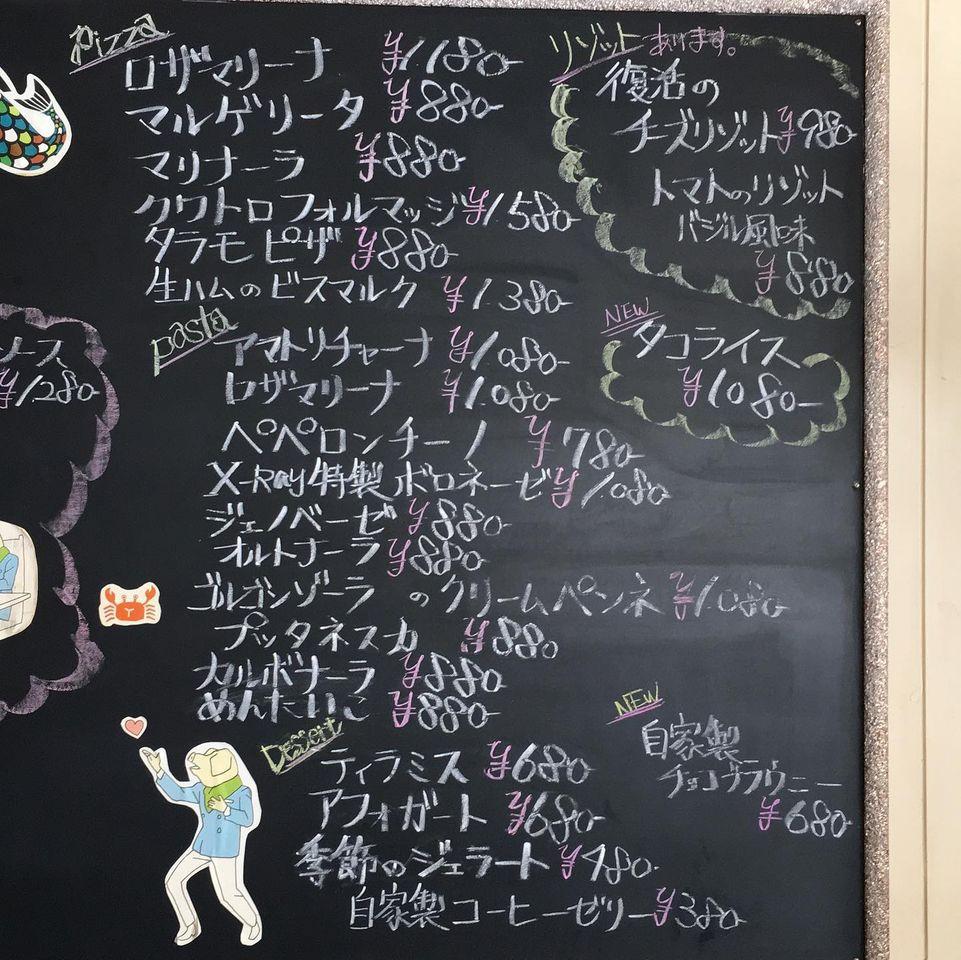 pizza
ロザマリーナ ¥1180-
マルゲリータ ¥880-
マリナーラ ¥880-
クワトロフォルマッジ¥1580-
タラモピザ ¥880-
生ハムのビスマルク ¥1380-
リゾットあります。
復活の
チーズリゾット¥980
トマトのリゾット
バジル風味
¥880
ソース
¥1280
pasta
アマトリチャーナ ¥1080-
ロザマリーナ ¥1080-
ペペロンチーノ ¥780-
X-Ray特製ボロネーゼ¥1080-
ジェノベーゼ ¥880-
オルトナーラ ¥880-
ゴルゴンゾーラのクリームペンネ ¥1080-
プッタネスカ ¥880-
カルボナーラ ¥880-
めんたいこ ¥880-
NEW
タコライス
¥1080-
Dessert
ティラミス ¥680-
アフォガート ¥680-
季節のジェラート ¥480-
自家製コーヒーゼリー¥380-
NEW
自家製
チョコブラウニー
¥680-